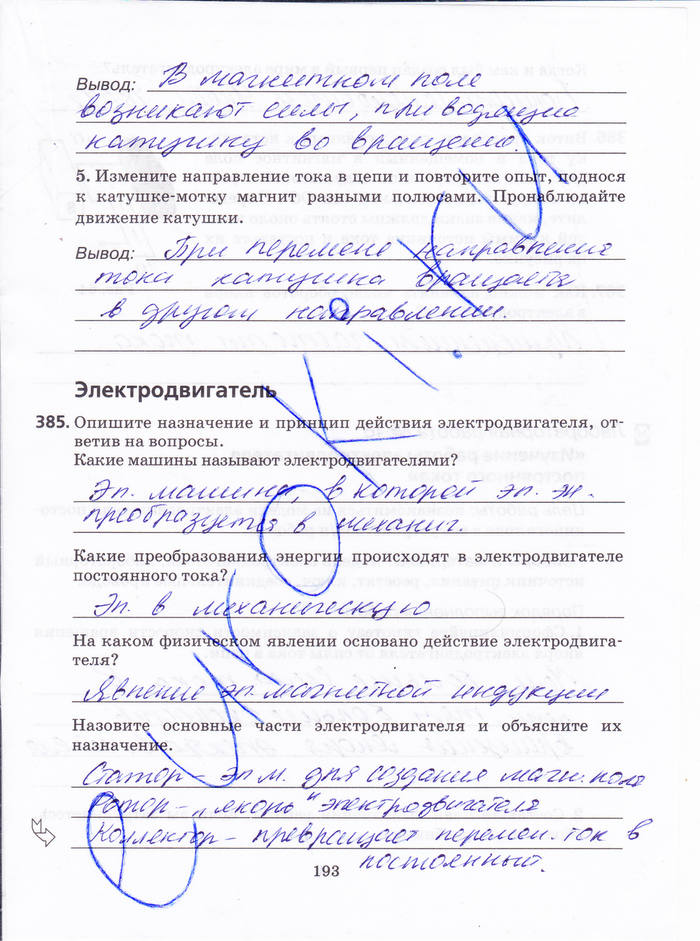 Вывод: В магнитном поле
возникают силы, приводящие
катушку во вращение.
5. Измените направление тока в цепи и повторите опыт, поднося
к катушке-мотку магнит разными полюсами. Пронаблюдайте
движение катушки.
Вывод: При перемене направления
тока катушка вращается
в другом направлении.
Электродвигатель
385. Опишите назначение и принцип действия электродвигателя, от-
ветив на вопросы.
Какие машины называют электродвигателями?
Эл. машина, в которой эл. эн.
преобразуется в механич.
Какие преобразования энергии происходят в электродвигателе
постоянного тока?
Эл. в механическую
На каком физическом явлении основано действие электродвига-
теля?
Явление эл. магнитной индукции
Назовите основные части электродвигателя и объясните их
назначение.
Статор – эл. м. для создания магн. поля
Ротор – „якорь" электродвигателя
Коллектор – превращает перемен. ток в
постоянный.
193